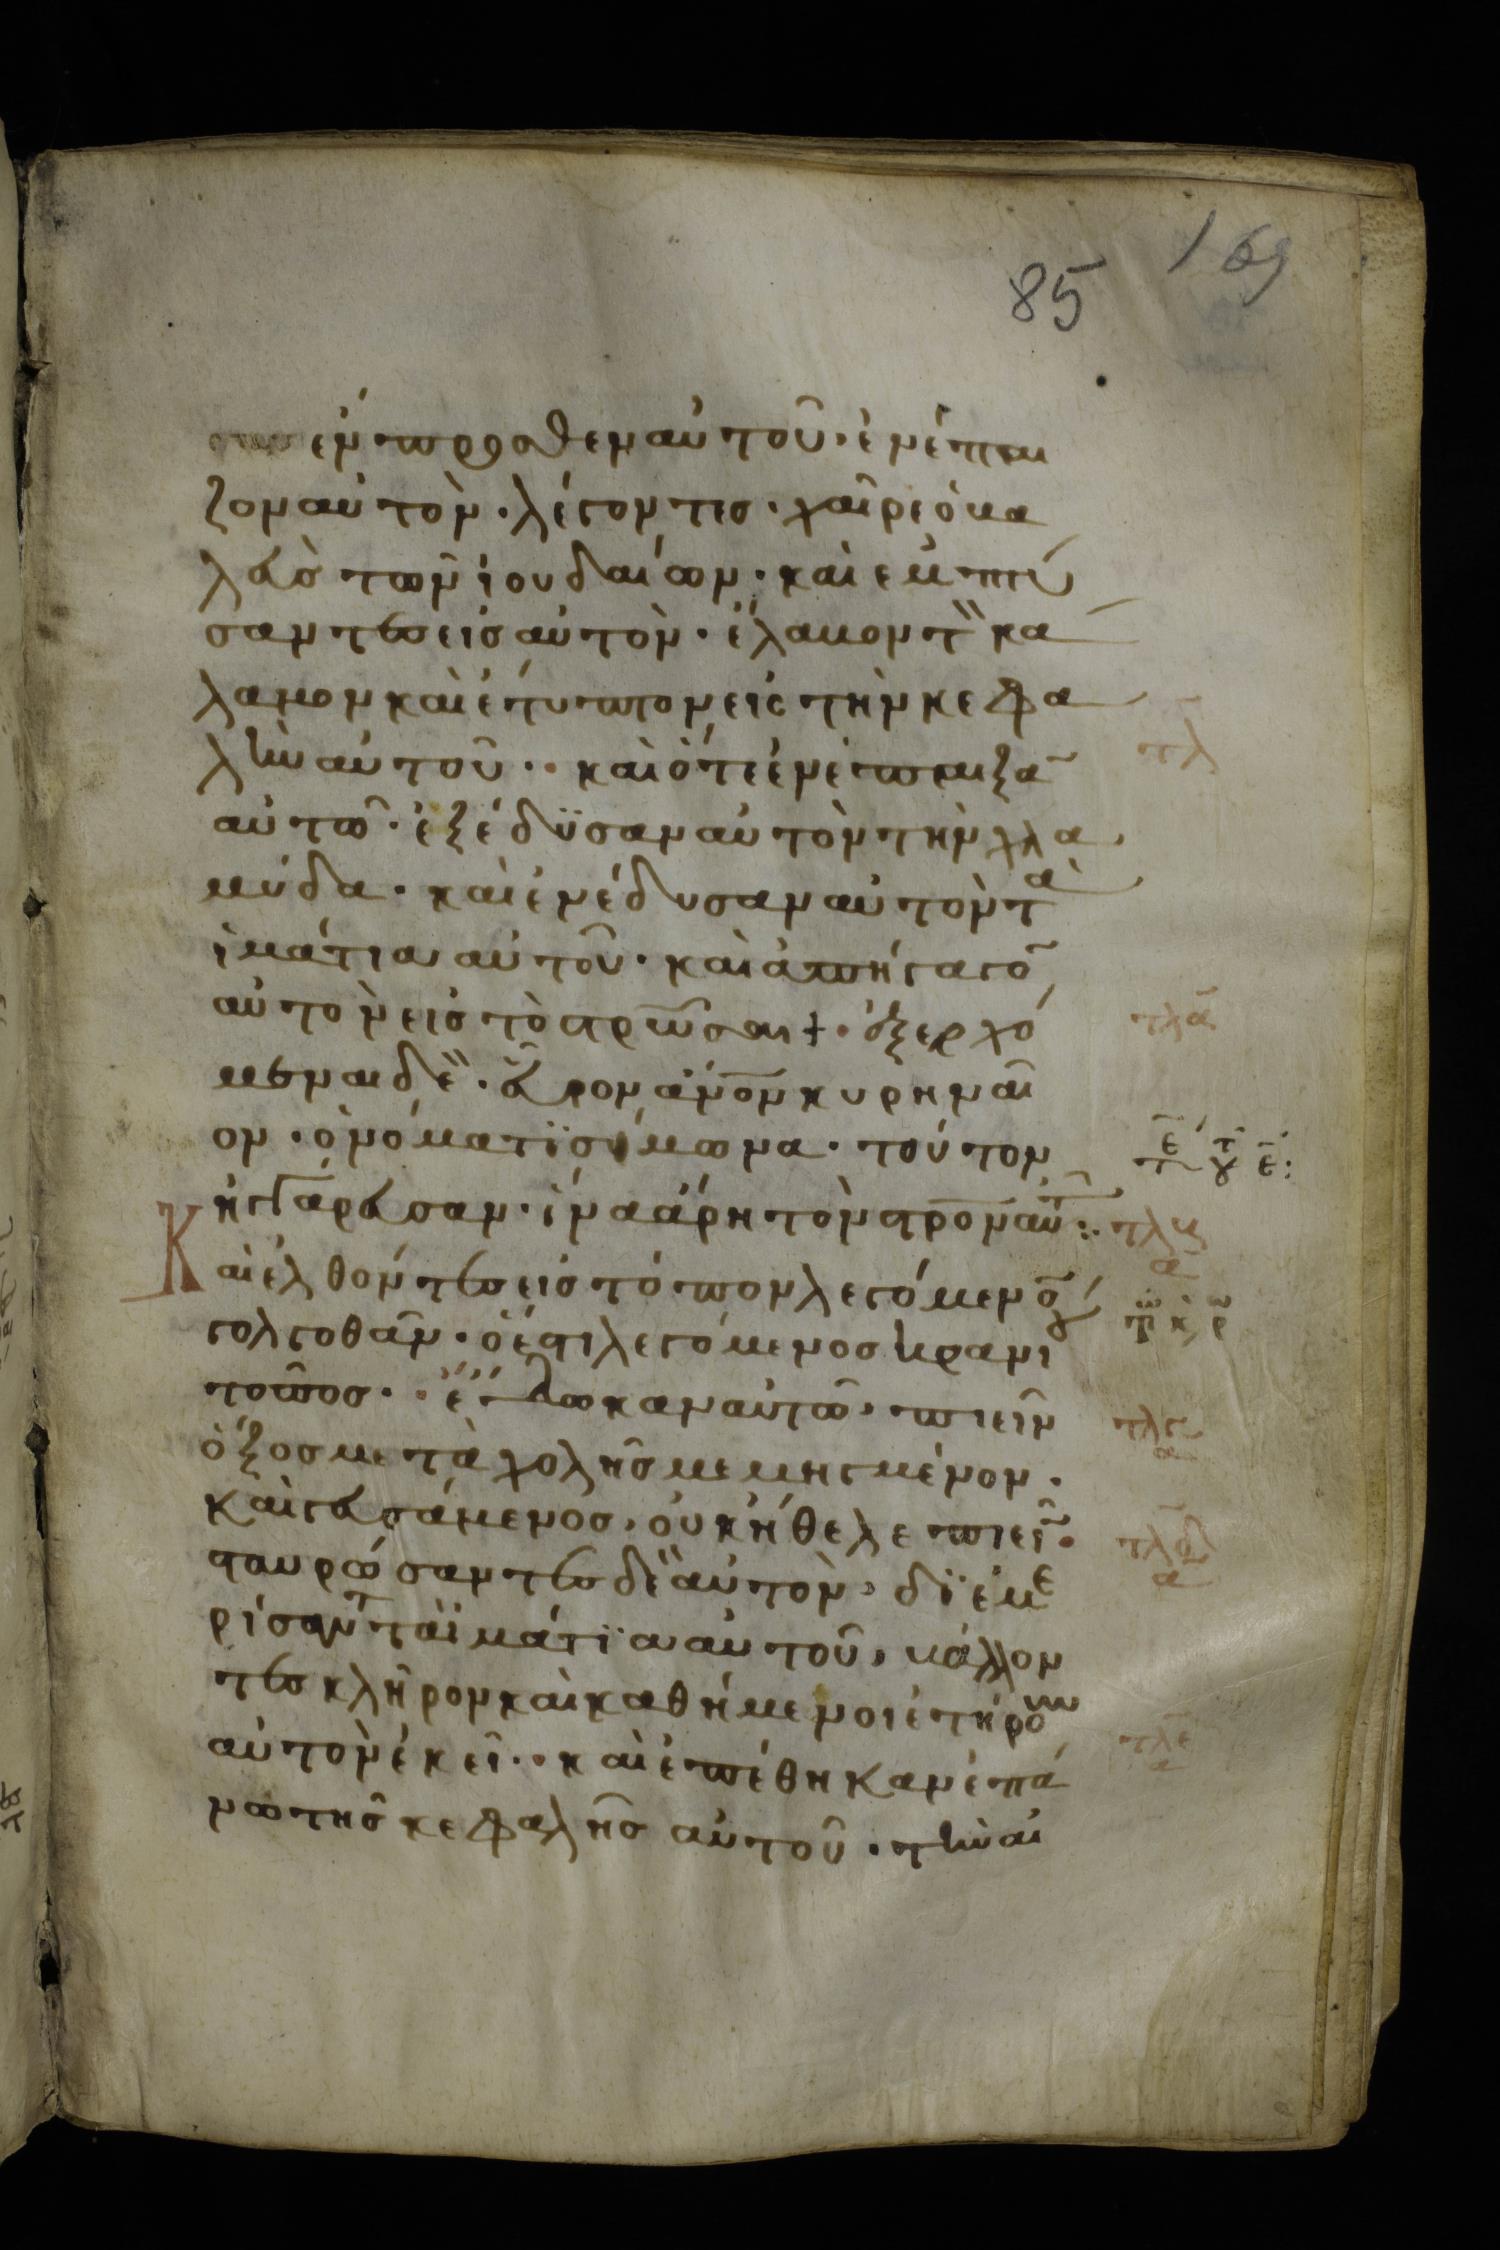 169
85
ἔμπροσθεν αὐτοῦ· ἐνέπαι
ζον αὐτὸν· λέγοντες· χαῖρε ὁ βα
λεὺς τῶν ἰουδαίων· καὶ ἐμπτύ
σαντες εἰς αὐτὸν· ἔλαβον τὸν κά
λαμον καὶ ἔτυπτον εἰς τὴν κεφα
λὴν αὐτοῦ·· καὶ ὅτε ἐνέπαιξα
αὐτῶ· ἐξέδυσαν αὐτὸν τὴν χλα
μύδα· καὶ ἐνέδυσαν αὐτὸν τὰ
ἱμάτια αὐτοῦ· καὶ ἀπήγαγο
αὐτὸν εἰς τὸ σταυρῶσαι +· ἐξερχό
μεναι δὲ· εὗρον ἄνον κυρηναῖ
ον· ὀνόματϊ σίμωνα· τοῦτον
ἠγγάρευσαν· ἵνα ἄρη τὸν στρον αὐτ:·
Καὶ ἐλθόντες εἰς τόπον λεγόμενο
γολγοθᾶν· ὅ ἐστι λεγόμενος κρανίου
τόπος·· ἔδωκαν αὐτῶ· πιεῖν
ὄξος μετὰ χολῆς μεμηγμένον·
καὶ γευσάμενος· οὐκ ἤθελε πιεῖ·
σταυρώσαντες δὲ αὐτὸν· δϊεμε
ρίσαντο τὰ ἱμάτϊα αὐτοῦ· βάλλον
τες κλῆρον καὶ καθήμενοι ἐτήρουν
αὐτὸν ἐκεῖ·· καὶ ἐπέθηκαν ἐπά
νω τῆς κεφαλῆς αὐτοῦ· τὴν αἰ